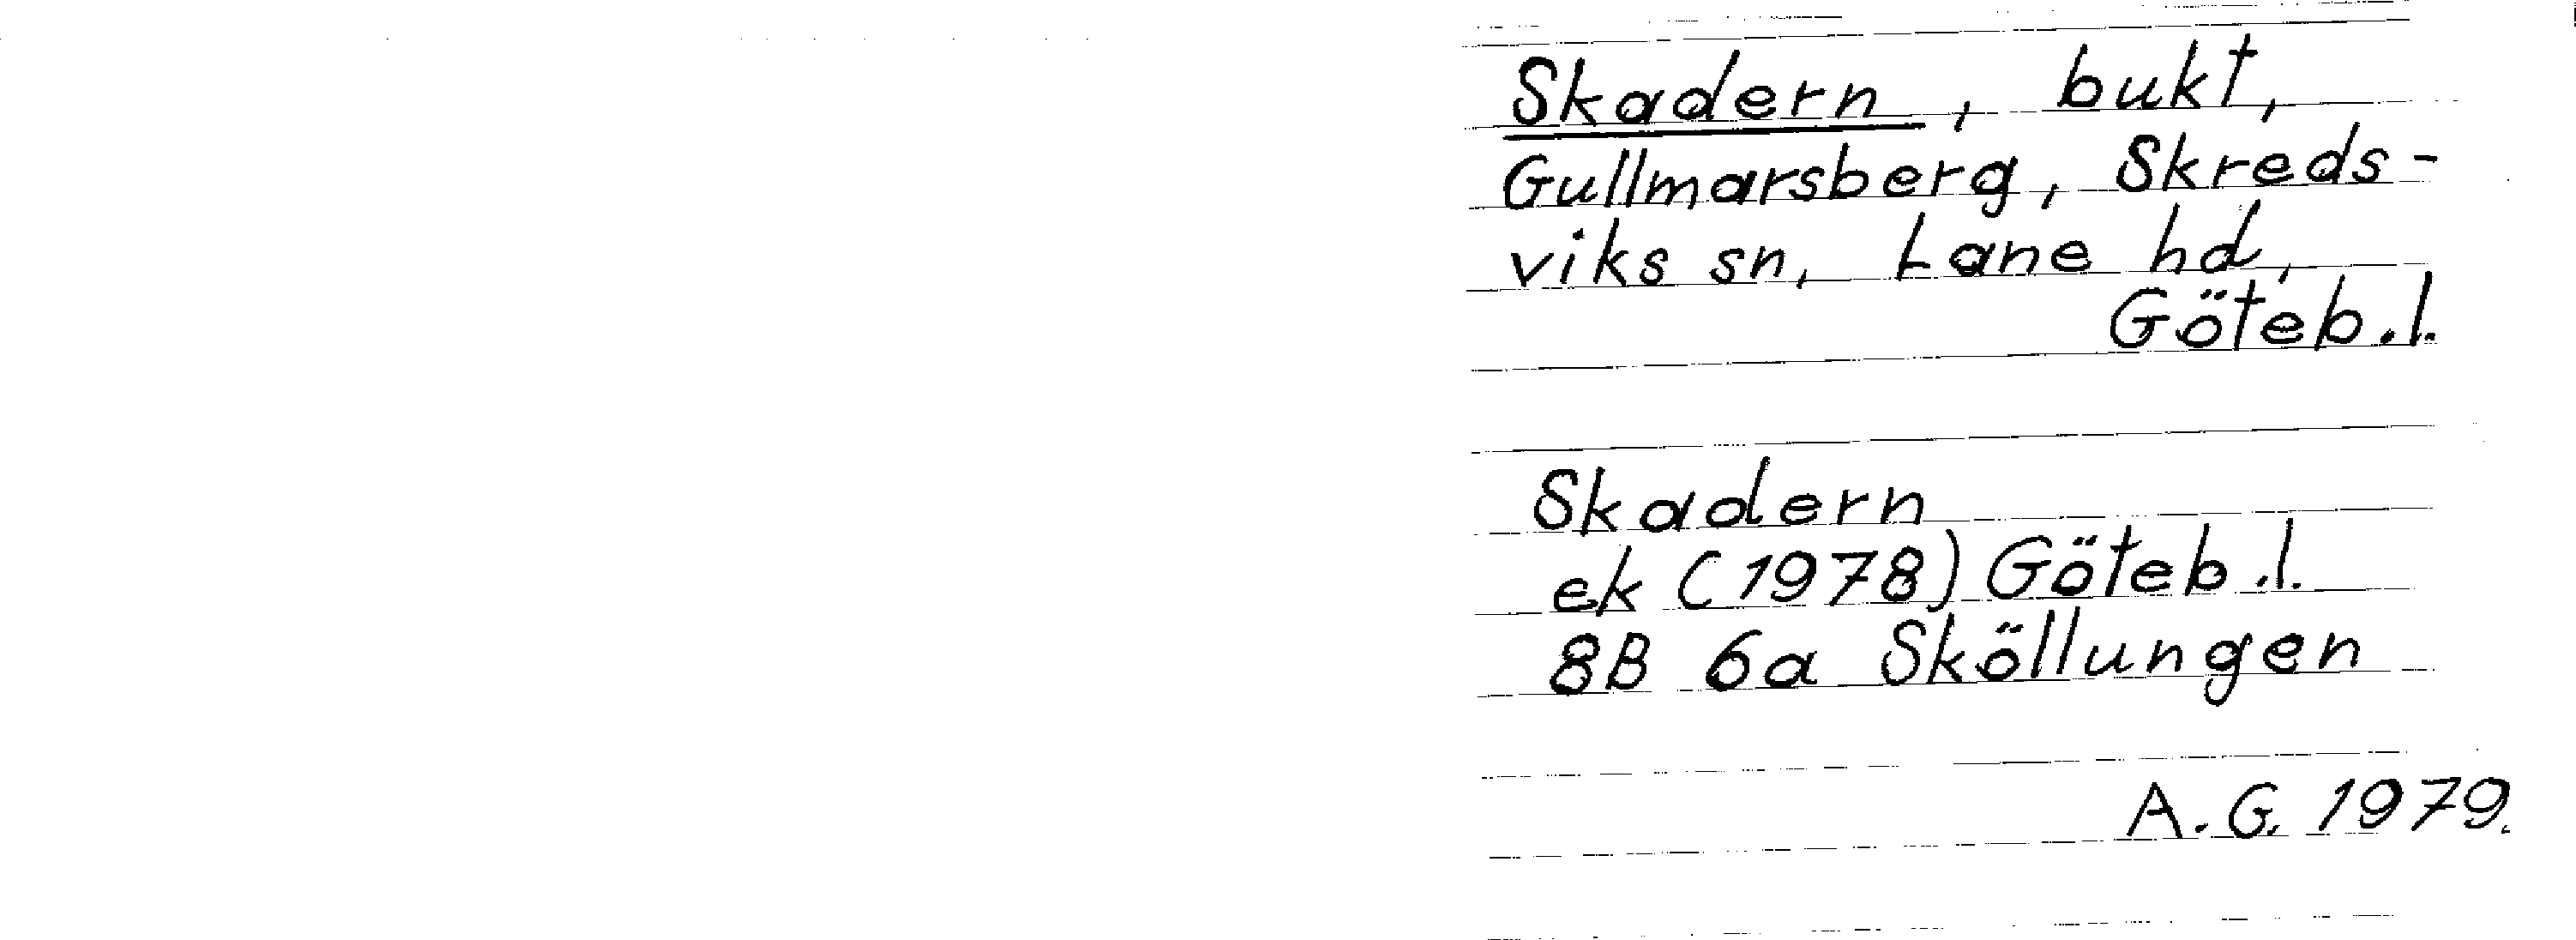 Skadern, bukt,
Gullmarsberg, Skreds-
viks sn, Lane hd,
Göteb.l.
Skadern
ek (1978) Göteb.l.
8B 6a Sköllungen
A.G. 1979.